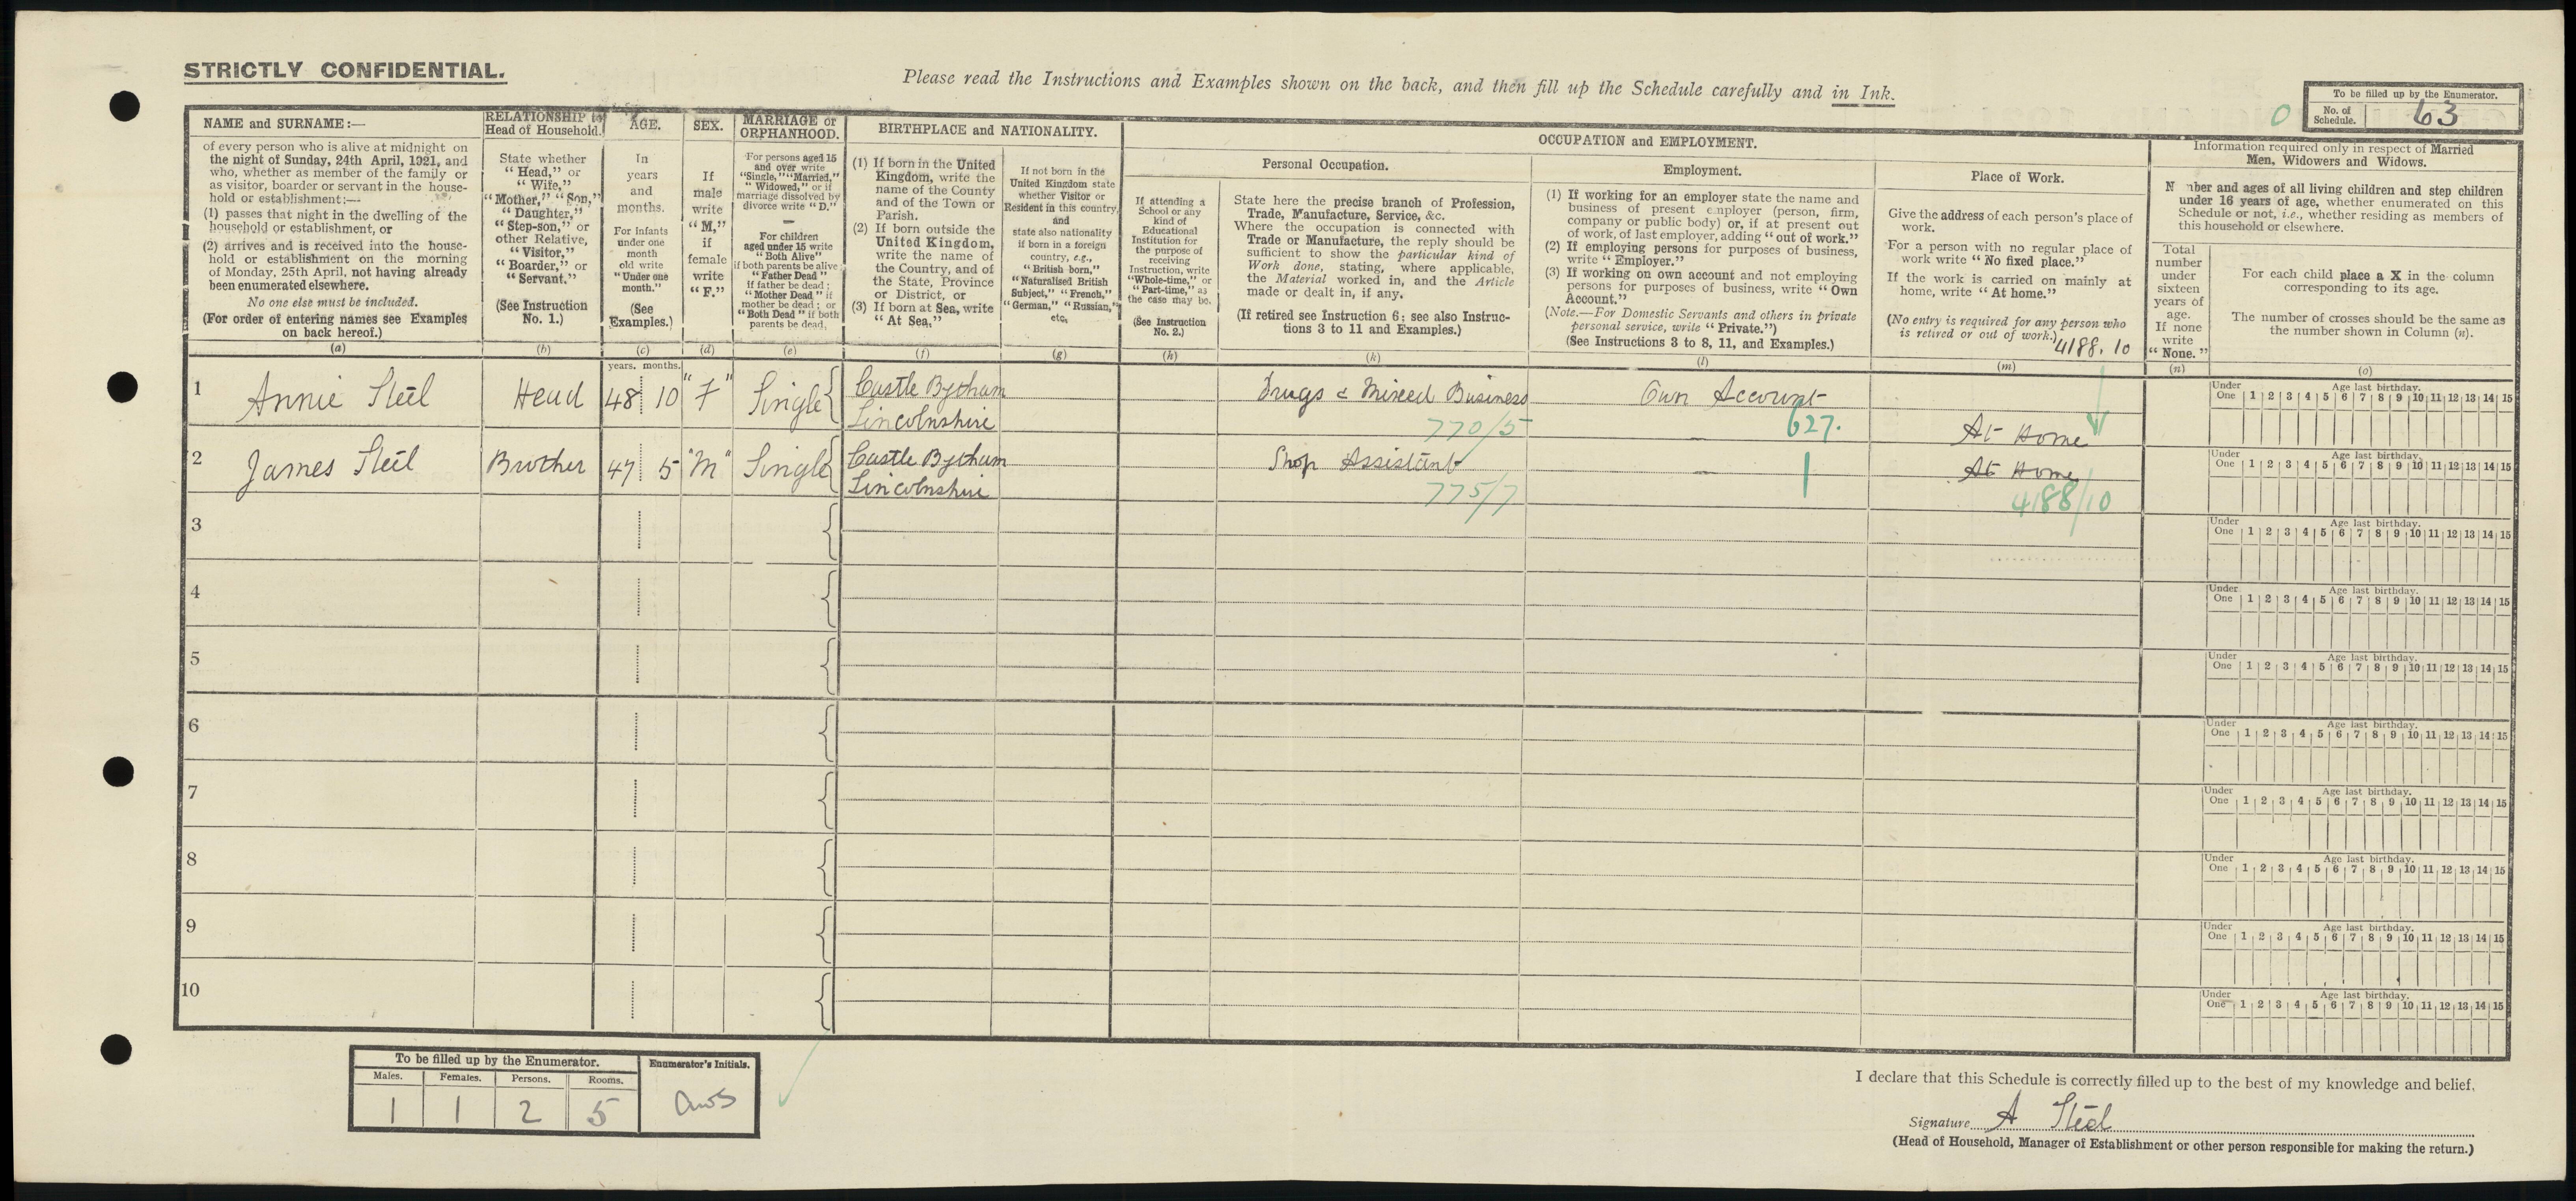 STRICTLY CONFIDENTIAL.
Please read the Instructions and Examples shown on the back, and then fill up the Schedule carefully and in Ink.
To be filled up by the Enumerator.
No. of Schedule. 63
0
NAME and SURNAME:—
of every person who is alive at midnight on
the night of Sunday, 24th April, 1921, and
who, whether as member of the family or
as visitor, boarder or servant in the house-
hold or establishment:—
(1) passes that night in the dwelling of the
household or establishment, or
(2) arrives and is received into the house-
hold or establishment on the morning
of Monday, 25th April, not having already
been enumerated elsewhere.
No one else must be included.
(For order of entering names see Examples
on back hereof.)
(a)
RELATIONSHIP to
Head of Household.
State whether
"Head," or
"Wife,"
"Mother," "Son,"
"Daughter,"
"Step-son," or
other Relative,
"Visitor,"
"Boarder," or
"Servant."
(See Instruction
No. 1.)
(b)
AGE.
In
years
and
months.
For infants
under one
month
old write
"Under one
month."
(See
Examples.)
(c)
SEX.
If
male
write
"M,"
if
female
write
"F."
(d)
MARRIAGE or
ORPHANHOOD.
For persons aged 15
and over write
"Single," "Married,"
"Widowed," or if
marriage dissolved by
divorce write "D."
—
For children
aged under 15 write
"Both Alive"
if both parents be alive;
"Father Dead"
if father be dead;
"Mother Dead" if
mother be dead; or
"Both Dead" if both
parents be dead.
(e)
BIRTHPLACE and NATIONALITY.
(1) If born in the United
Kingdom, write the
name of the County
and of the Town or
Parish.
(2) If born outside the
United Kingdom,
write the name of
the Country, and of
the State, Province
or District, or
(3) If born at Sea, write
"At Sea."
(f)
If not born in the
United Kingdom state
whether Visitor or
Resident in this country,
and
state also nationality
if born in a foreign
country, e.g.,
"British born,"
"Naturalised British
Subject," "French,"
"German," "Russian,"
etc.
(g)
OCCUPATION and EMPLOYMENT.
If attending a
School or any
kind of
Educational
Institution for
the purpose of
receiving
Instruction, write
"Whole-time," or
"Part-time," as
the case may be.
(See Instruction
No. 2.)
(h)
Personal Occupation.
State here the precise branch of Profession,
Trade, Manufacture, Service, &c.
Where the occupation is connected with
Trade or Manufacture, the reply should be
sufficient to show the particular kind of
Work done, stating, where applicable,
the Material worked in, and the Article
made or dealt in, if any.
(If retired see Instruction 6; see also Instruc-
tions 3 to 11 and Examples.)
(k)
Employment.
(1) If working for an employer state the name and
business of present employer (person, firm,
company or public body) or, if at present out
of work, of last employer, adding "out of work."
(2) If employing persons for purposes of business,
write "Employer."
(3) If working on own account and not employing
persons for purposes of business, write "Own
Account."
(Note.—For Domestic Servants and others in private
personal service, write "Private.")
(See Instructions 3 to 8, 11, and Examples.)
(l)
Place of Work.
Give the address of each person's place of
work.
For a person with no regular place of
work write "No fixed place."
If the work is carried on mainly at
home, write "At home."
(No entry is required for any person who
is retired or out of work.)
4188.10
(m)
Information required only in respect of Married
Men, Widowers and Widows.
N ber and ages of all living children and step children
under 16 years of age, whether enumerated on this
Schedule or not, i.e., whether residing as members of
this household or elsewhere.
Total
number
under
sixteen
years of
age.
If none
write
"None."
(n)
For each child place a X in the column
corresponding to its age.
The number of crosses should be the same as
the number shown in Column (n).
(o)
years. months.
1 Annie Steel Head 48 10 "F" Single Castle Bytham Drugs & Mixed Business Own Account
Lincolnshire 770/5 — 627. At Home
Under One Age last birthday. 1 2 3 4 5 6 7 8 9 10 11 12 13 14 15
2 James Steel Brother 47 5 "M" Single Castle Bytham Shop Assistant — At Home
Lincolnshire 775/7 1 4188/10
Under One Age last birthday. 1 2 3 4 5 6 7 8 9 10 11 12 13 14 15
3
Under One Age last birthday. 1 2 3 4 5 6 7 8 9 10 11 12 13 14 15
4
Under One Age last birthday. 1 2 3 4 5 6 7 8 9 10 11 12 13 14 15
5
Under One Age last birthday. 1 2 3 4 5 6 7 8 9 10 11 12 13 14 15
6
Under One Age last birthday. 1 2 3 4 5 6 7 8 9 10 11 12 13 14 15
7
Under One Age last birthday. 1 2 3 4 5 6 7 8 9 10 11 12 13 14 15
8
Under One Age last birthday. 1 2 3 4 5 6 7 8 9 10 11 12 13 14 15
9
Under One Age last birthday. 1 2 3 4 5 6 7 8 9 10 11 12 13 14 15
10
Under One Age last birthday. 1 2 3 4 5 6 7 8 9 10 11 12 13 14 15
To be filled up by the Enumerator.
Enumerator's Initials.
Males. Females. Persons. Rooms.
1 1 2 5
I declare that this Schedule is correctly filled up to the best of my knowledge and belief.
Signature A Steel
(Head of Household, Manager of Establishment or other person responsible for making the return.)